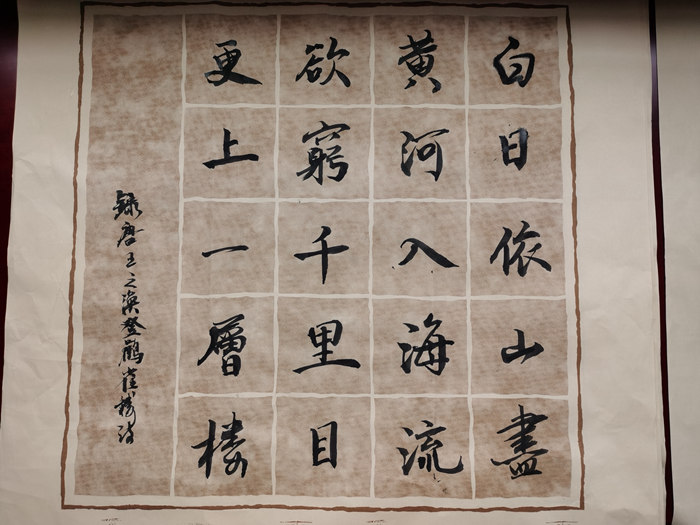 白日依山盡
黄河入海流
欲窮千里目
更上一層樓
録唐王之渙登鸛雀樓詩